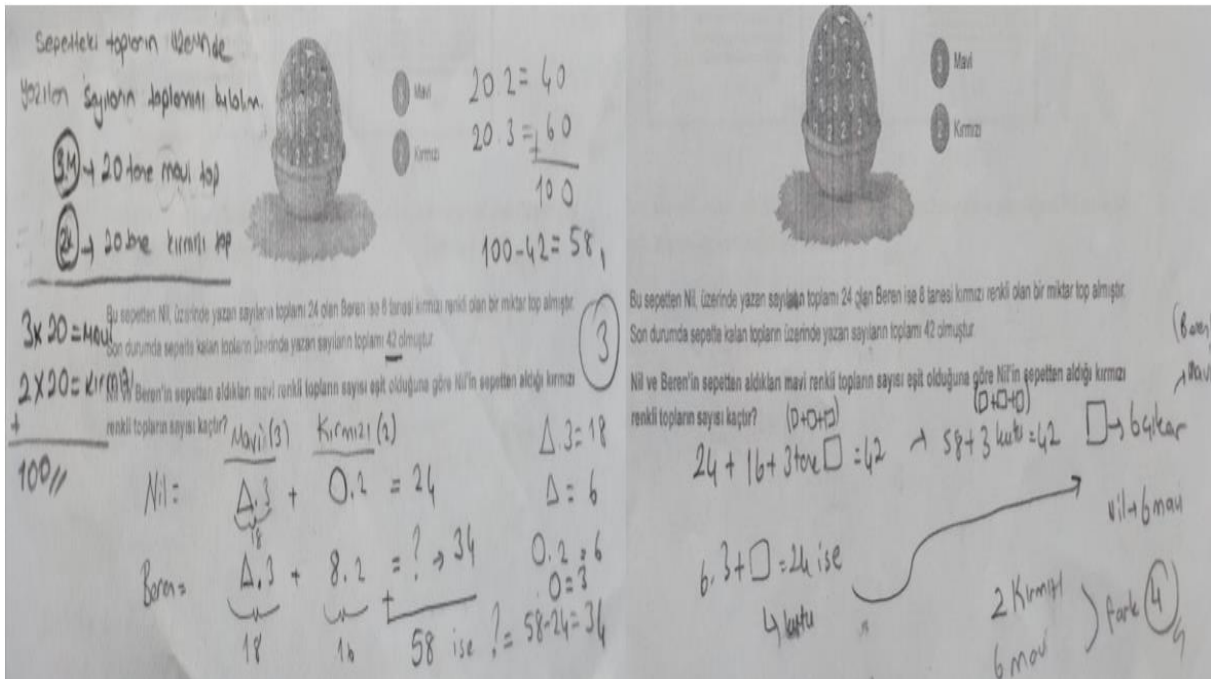 Sepetteki topların üzerinde
yazılan sayıların toplamını bulalım.
3M → 20 tane mavi top
2K → 20 tane kırmızı top
3 x 20 = Mavi
2 x 20 = Kırmızı
+
100//
3 Mavi
2 Kırmızı
20.2 = 40
20.3 = 60
+
100
100-42 = 58,
Bu sepetten Nil, üzerinde yazan sayıların toplamı 24 olan Beren ise 8 tanesi kırmızı renkli olan bir miktar top almıştır.
Son durumda sepette kalan topların üzerinde yazan sayıların toplamı 42 olmuştur.
3
Nil ve Beren'in sepetten aldıkları mavi renkli topların sayısı eşit olduğuna göre Nil'in sepetten aldığı kırmızı
renkli topların sayısı kaçtır?
Mavi (3) Kırmızı (2)
Nil = Δ.3 + O.2 = 24
18
Beren = Δ.3 + 8.2 = ? → 34
18 16
+
58 ise ? = 58-24 = 34
Δ.3 = 18
Δ = 6
O.2 = 6
O = 3
3 Mavi
2 Kırmızı
Bu sepetten Nil, üzerinde yazan sayıların toplamı 24 olan Beren ise 8 tanesi kırmızı renkli olan bir miktar top almıştır.
Son durumda sepette kalan topların üzerinde yazan sayıların toplamı 42 olmuştur.
Nil ve Beren'in sepetten aldıkları mavi renkli topların sayısı eşit olduğuna göre Nil'in sepetten aldığı kırmızı
renkli topların sayısı kaçtır?
(□+□+□) (□+□+□)
24 + 16 + 3 tane □ = 42 → 58 + 3 kutu = 42 □ → 6 çıkar
(Beren
→ Mavi
Nil → 6 mavi
6.3 + □ = 24 ise
4 kutu
2 Kırmızı
6 mavi
fark 4